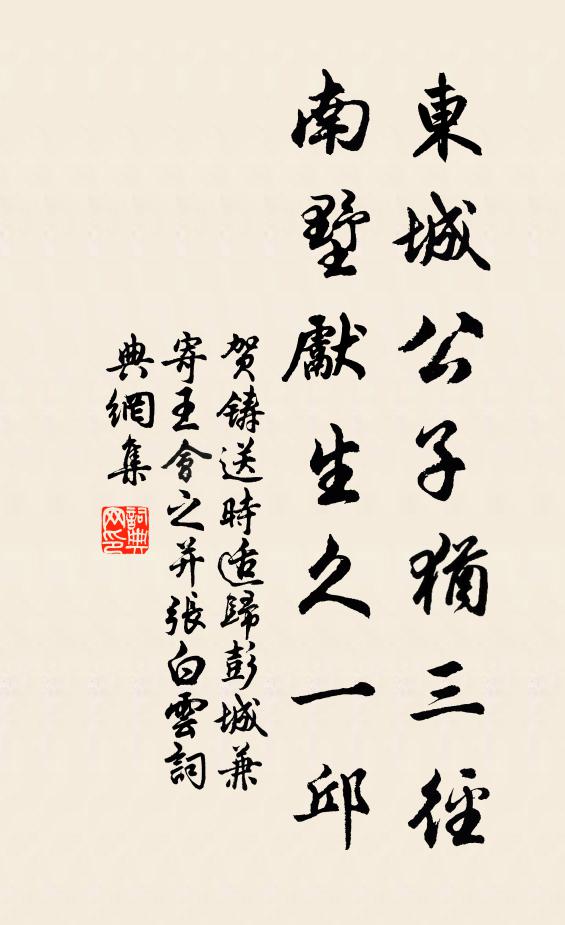 東城公子猶三徑
南墅獻生久一邱
贺鑄送時适歸彭城兼
寄王會之并張白雲詞
典網集
詞典网印